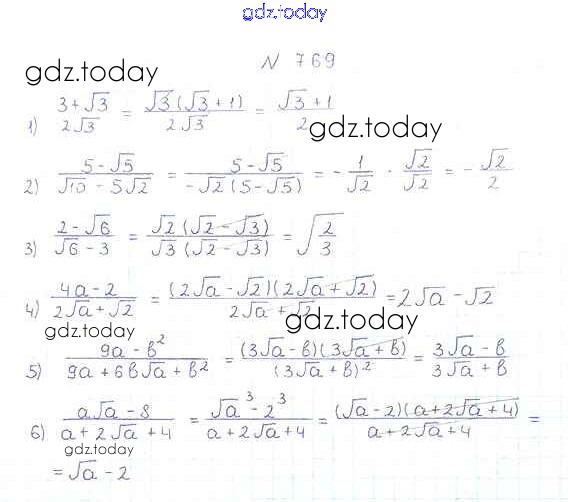 gdz.today
N 769
gdz.today
1) (3+√3)/(2√3) = (√3(√3+1))/(2√3) = (√3+1)/2
gdz.today
2) (5-√5)/(√10-5√2) = (5-√5)/(-√2(5-√5)) = -1/√2 · √2/√2 = -√2/2
3) (2-√6)/(√6-3) = (√2(√2-√3))/(√3(√2-√3)) = √(2/3)
4) (4a-2)/(2√a+√2) = ((2√a-√2)(2√a+√2))/(2√a+√2) = 2√a-√2
gdz.today
gdz.today
5) (9a-b²)/(9a+6b√a+b²) = ((3√a-b)(3√a+b))/(3√a+b)² = (3√a-b)/(3√a+b)
6) (a√a-8)/(a+2√a+4) = (√a³-2³)/(a+2√a+4) = ((√a-2)(a+2√a+4))/(a+2√a+4) =
gdz.today
= √a-2